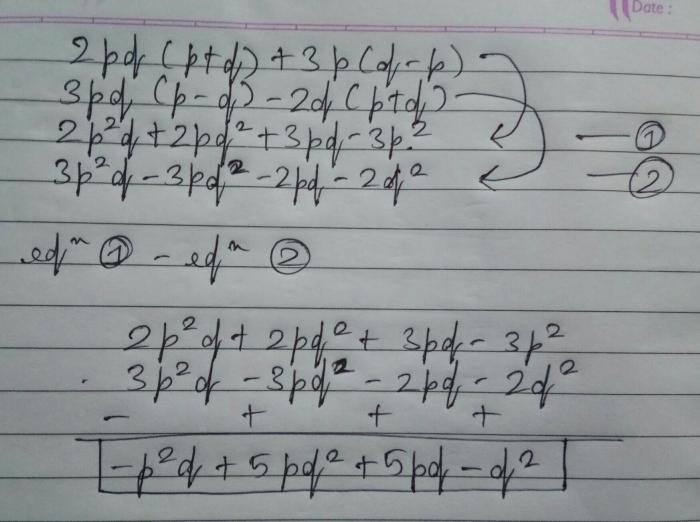 Date :
2pq (p+q) + 3p (q-p)
3pq (p-q) - 2q (p+q)
2p²q + 2pq² + 3pq - 3p² — ①
3p²q - 3pq² - 2pq - 2q² — ②
eqⁿ ① - eqⁿ ②
2p²q + 2pq² + 3pq - 3p²
3p²q - 3pq² - 2pq - 2q²
- + + +
-p²q + 5pq² + 5pq - q²